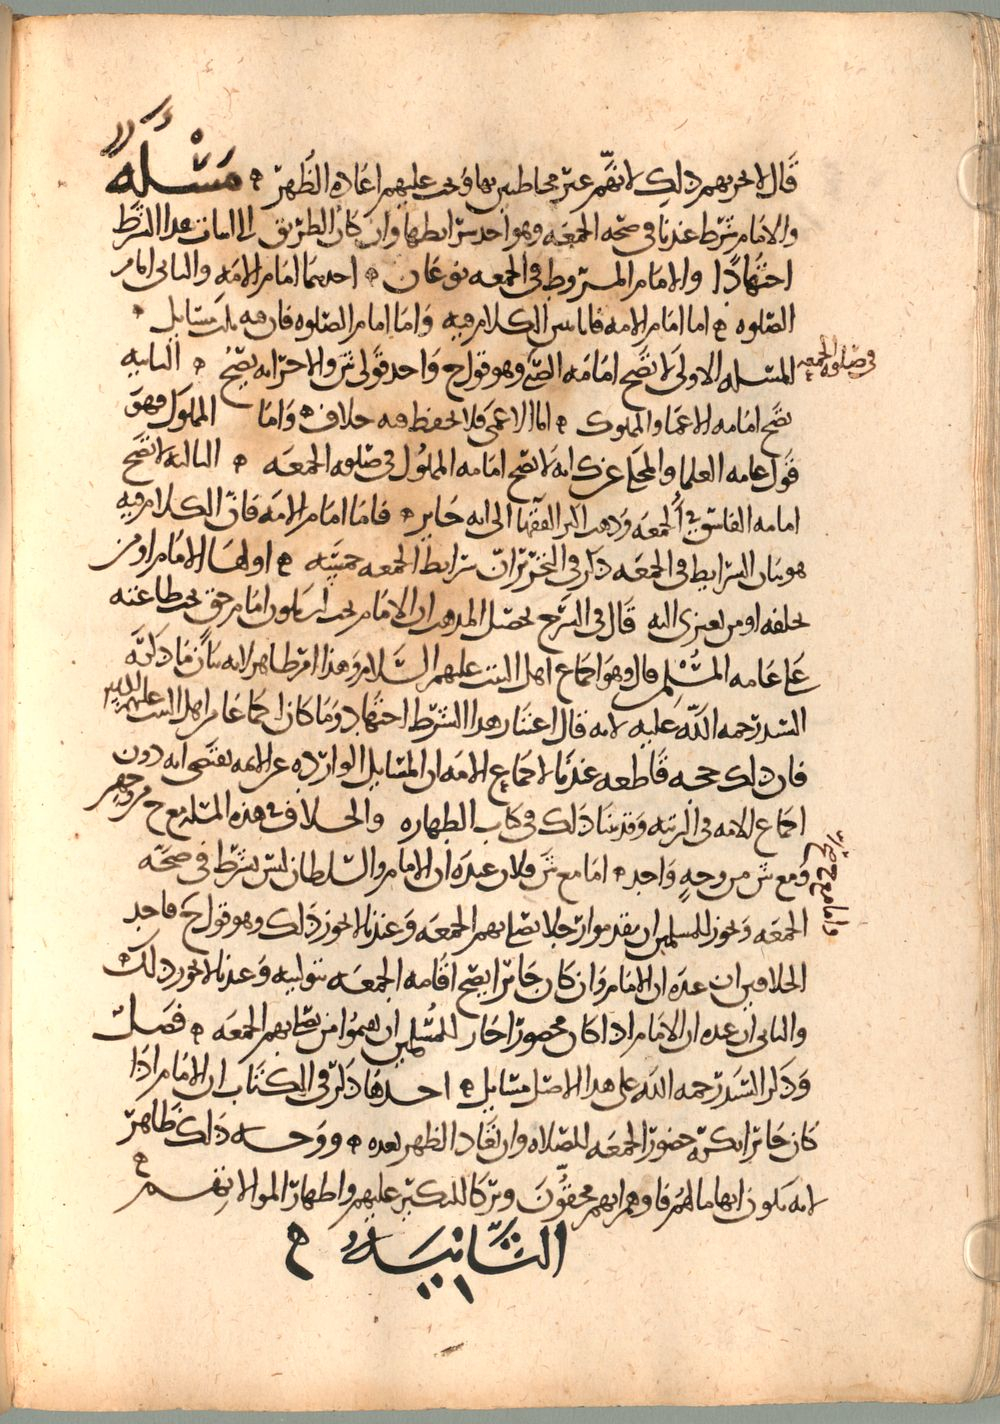 قال لا يجزيهم ذلك لانهم غير مخاطبين بها وتجب عليهم اعادة الظهر ۞ مسئلة
والامام شرط عندنا في صحة الجمعة وهو احد شرايطها وان كان الطريق الى اثبات هذا الشرط
اجتهادا والامام المشروط في الجمعة نوعان ۞ احدهما امام الامة والثاني امام
الصلوة ۞ اما امام الامة فالكلام فيه واما امام الصلوة فان فيه ثلث مسايل
المسئلة الاولى لا تصح امامة الصبي وهو قول ح واحد قولي ش والاخر انه يصح ۞ الثانية
في صلوة الجمعة
تصح امامة الاعما والمملوك ۞ اما الاعمى فلا يحفظ فيه خلاف ۞ واما المملوك فهو
قول عامة العلما والمحكي عن ك انه لا تصح امامة المملوك في صلوة الجمعة ۞ الثالثة لا تصح
امامة الفاسق في الجمعة وذهب اكثر الفقها الى انه جايز ۞ فاما امام الامة فان الكلام فيه
هو بيان الشرايط في الجمعة ذكر في التحرير ان شرايط الجمعة خمسة ۞ اولها الامام او من
يخلفه او من يعتزي اليه قال في الشرح تحصيل المذهب ان الامام يجب ان يكون امام حق يجب طاعته
على عامة المسلمين قال وهو اجماع اهل البيت عليهم السلام وهذا امر ظاهر لانه بيان ما ذكره
السيد رحمة الله عليه لانه قال اعتبار هذا الشرط اجتهاد وما كان اجماعا من اهل البيت عليهم السلام
فان ذلك حجة قاطعة عندنا لاجماع الامة ان المسايل الواردة عن الايمة يقتضي انه دون
اجماع الامة في الرتبة وقد بينا ذلك في كتاب الطهارة والخلاف في هذه المسئلة مع ح من وجهين
ومع ش من وجه واحد ۞ اما مع ش فلان عنده ان الامام والسلطان ليس بشرط في صحة
واما مع ح
الجمعة ويجوز للمسلمين ان يقدموا رجلا يصلي بهم الجمعة وعندنا لا يجوز ذلك وهو قول ح فاحد
الخلافين ان عنده ان الامام وان كان جايرا يصح اقامة الجمعة بتوليته وعندنا لا يجوز ذلك
والثاني ان عنده ان الامام اذا كان محصورا جاز للمسلمين ان يقيموا من يصلي بهم الجمعة ۞ فصل
وذكر السيد رحمه الله على هذا الاصل مسايل ۞ احدها ذكر في الكتاب ان الامام اذا
كان جايرا يكره حضور الجمعة للصلاة وان تعاد الظهر بعده ۞ ووجه ذلك ظاهر
لانه يكون ايهاما لهم انهم محقون وتركا للنكير عليهم واظهار الموالاتهم ۞
الثانية ۞